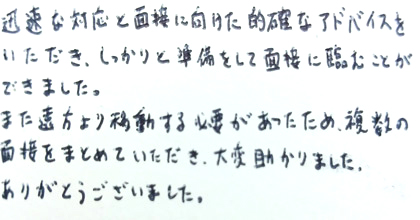 迅速な対応と面接に向けた的確なアドバイスを
いただき、しっかりと準備をして面接に臨むことが
できました。
また遠方より移動する必要があったため、複数の
面接をまとめていただき、大変助かりました。
ありがとうございました。